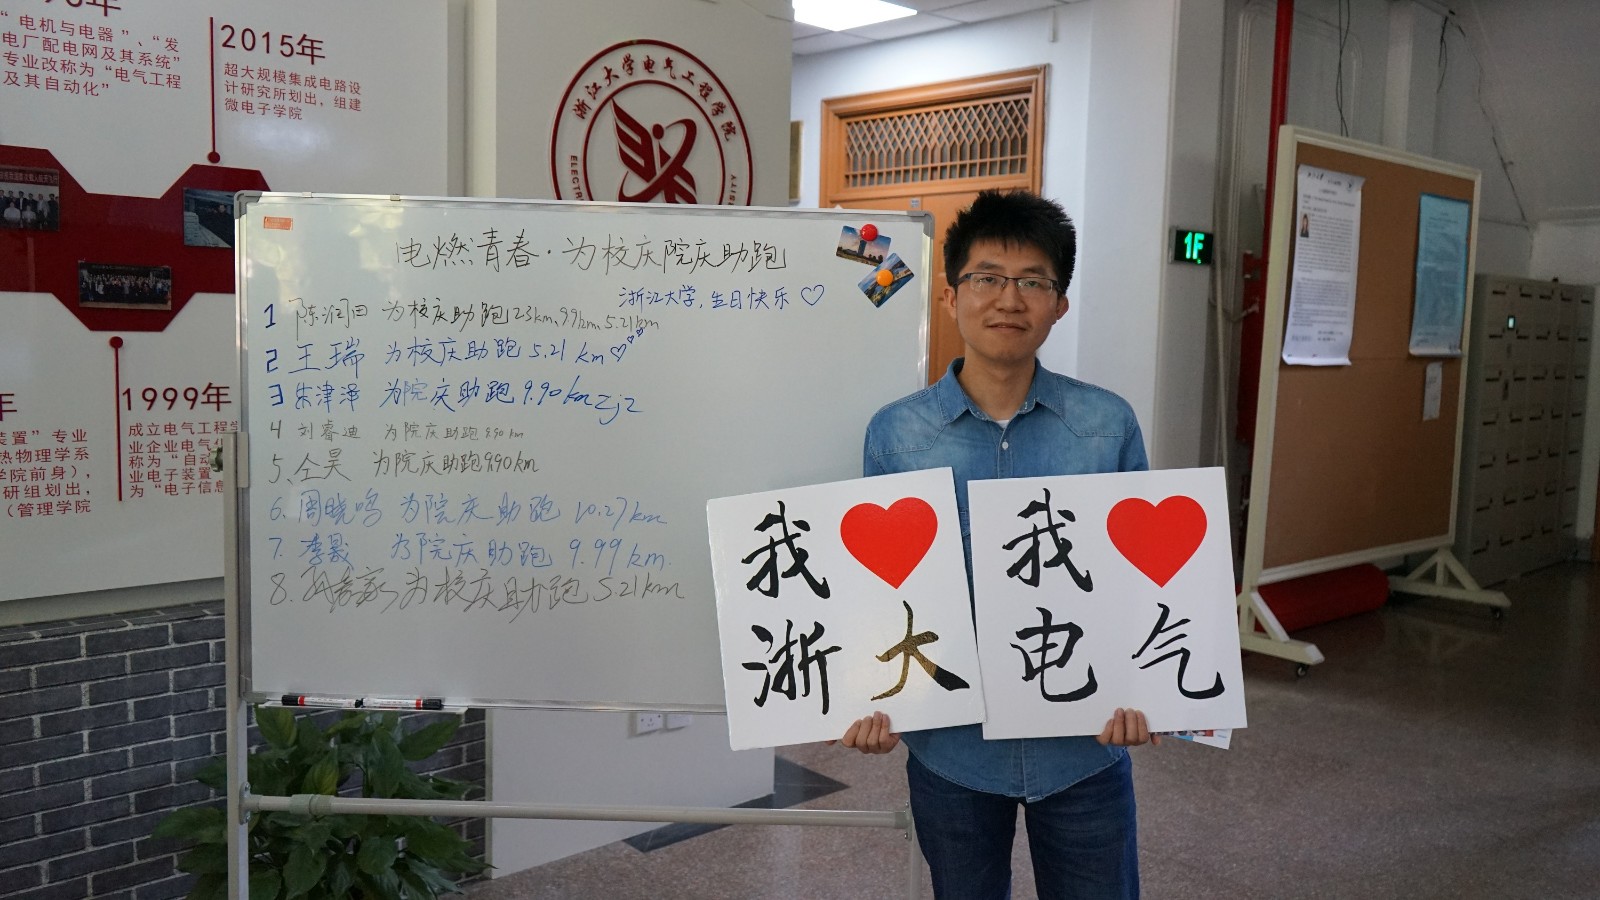 “电机与电器”、“发
电厂配电网及其系统”
专业改称为“电气工程
及其自动化”
2015年
超大规模集成电路设
计研究所划出，组建
微电子学院
浙江大学电气工程学院
1999年
成立电气工程学
业企业电气
称为“自动
业电子装置
为“电子信息
装置”专业
热物理学系
学院前身），
研组划出，
（管理学院
电燃青春·为校庆院庆助跑
浙江大学，生日快乐♡
1 陈润田 为校庆助跑23km、99km、5.21km
2 王瑞 为校庆助跑 5.21 km♡
3 朱津泽 为院庆助跑 9.90km zjz
4 刘睿迪 为院庆助跑 9.90 km
5. 仝昊 为院庆助跑9.90km
6. 周晓鸣 为院庆助跑 10.27km
7. 李晟 为院庆助跑 9.99km.
8. 为校庆助跑 5.21km
1F
我❤
浙大
我❤
电气